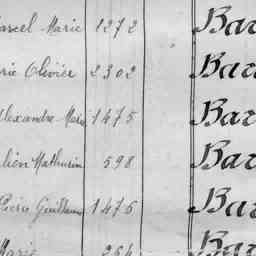 arcel Marie 1272 Bar
rie Olivier 2302 Bar
lexandre Marie 1475 Bar
lien Mathurin 598 Bar
Pierre Guillaume 1476 Bar
Marie 264 Bar